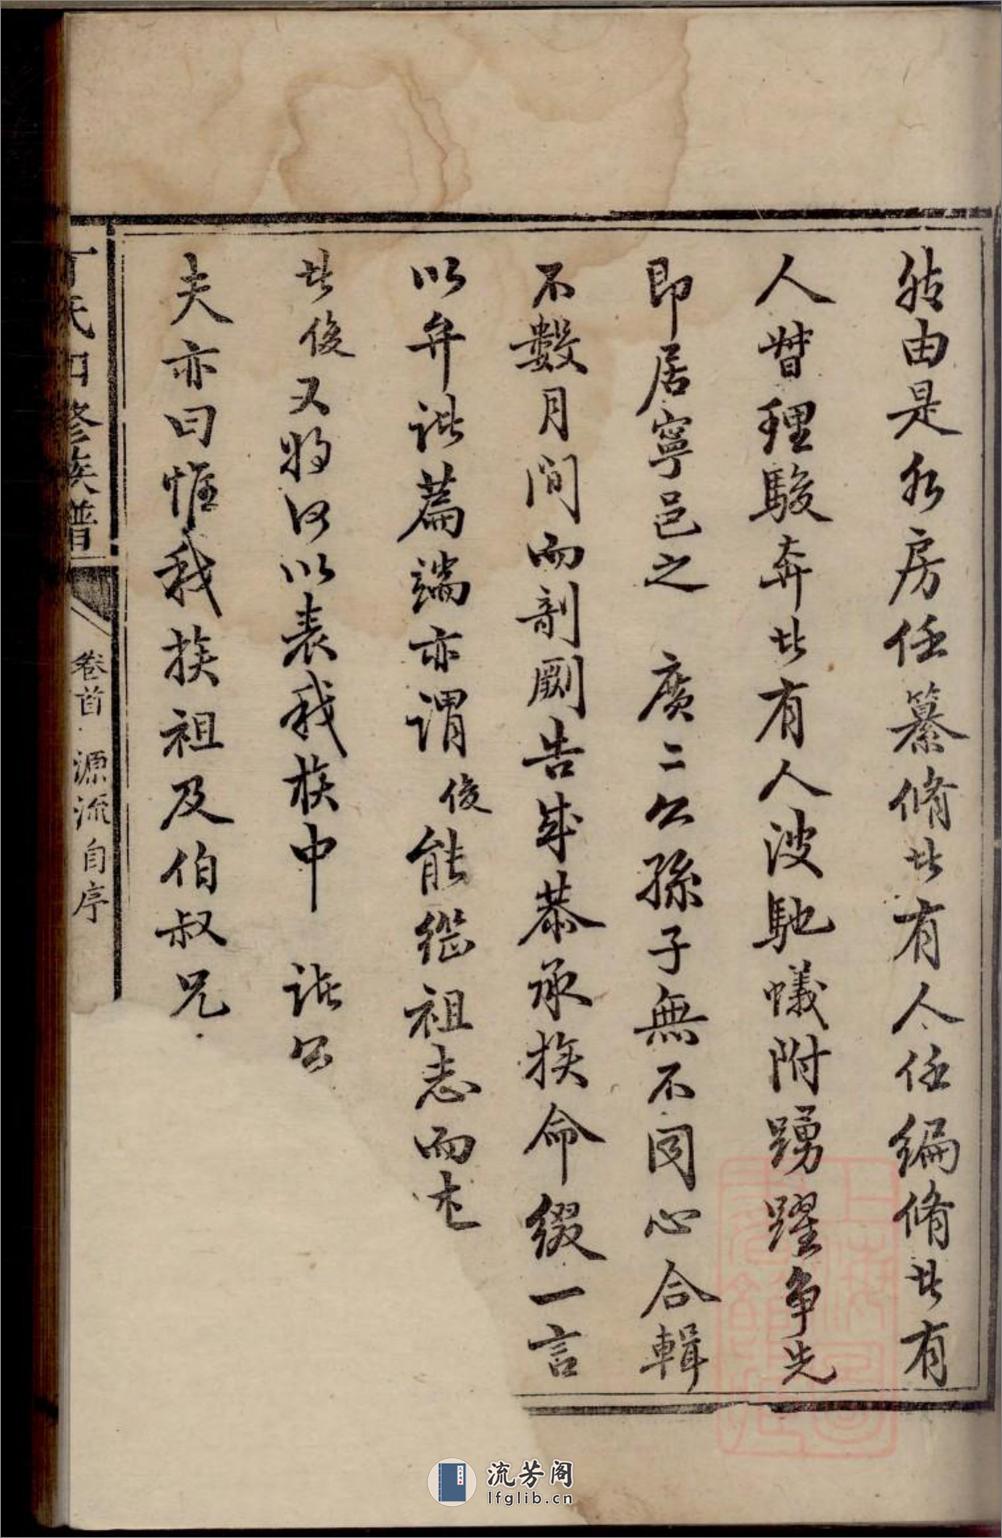 然由是各房任纂脩者有人任編脩者有
人督理駿奔者有人波馳蟻附踴躍争先
即居寧邑之 廣二公孫子無不同心合輯
不數月間而剞劂告成恭承族命綴一言
以弁諸篇端亦謂俊能繼祖志而
者俊又將何以表我族中 諸公
夫亦曰惟我族祖及伯叔兄
丁氏四修族譜
卷首 源流自序
流芳阁
lfglib.cn